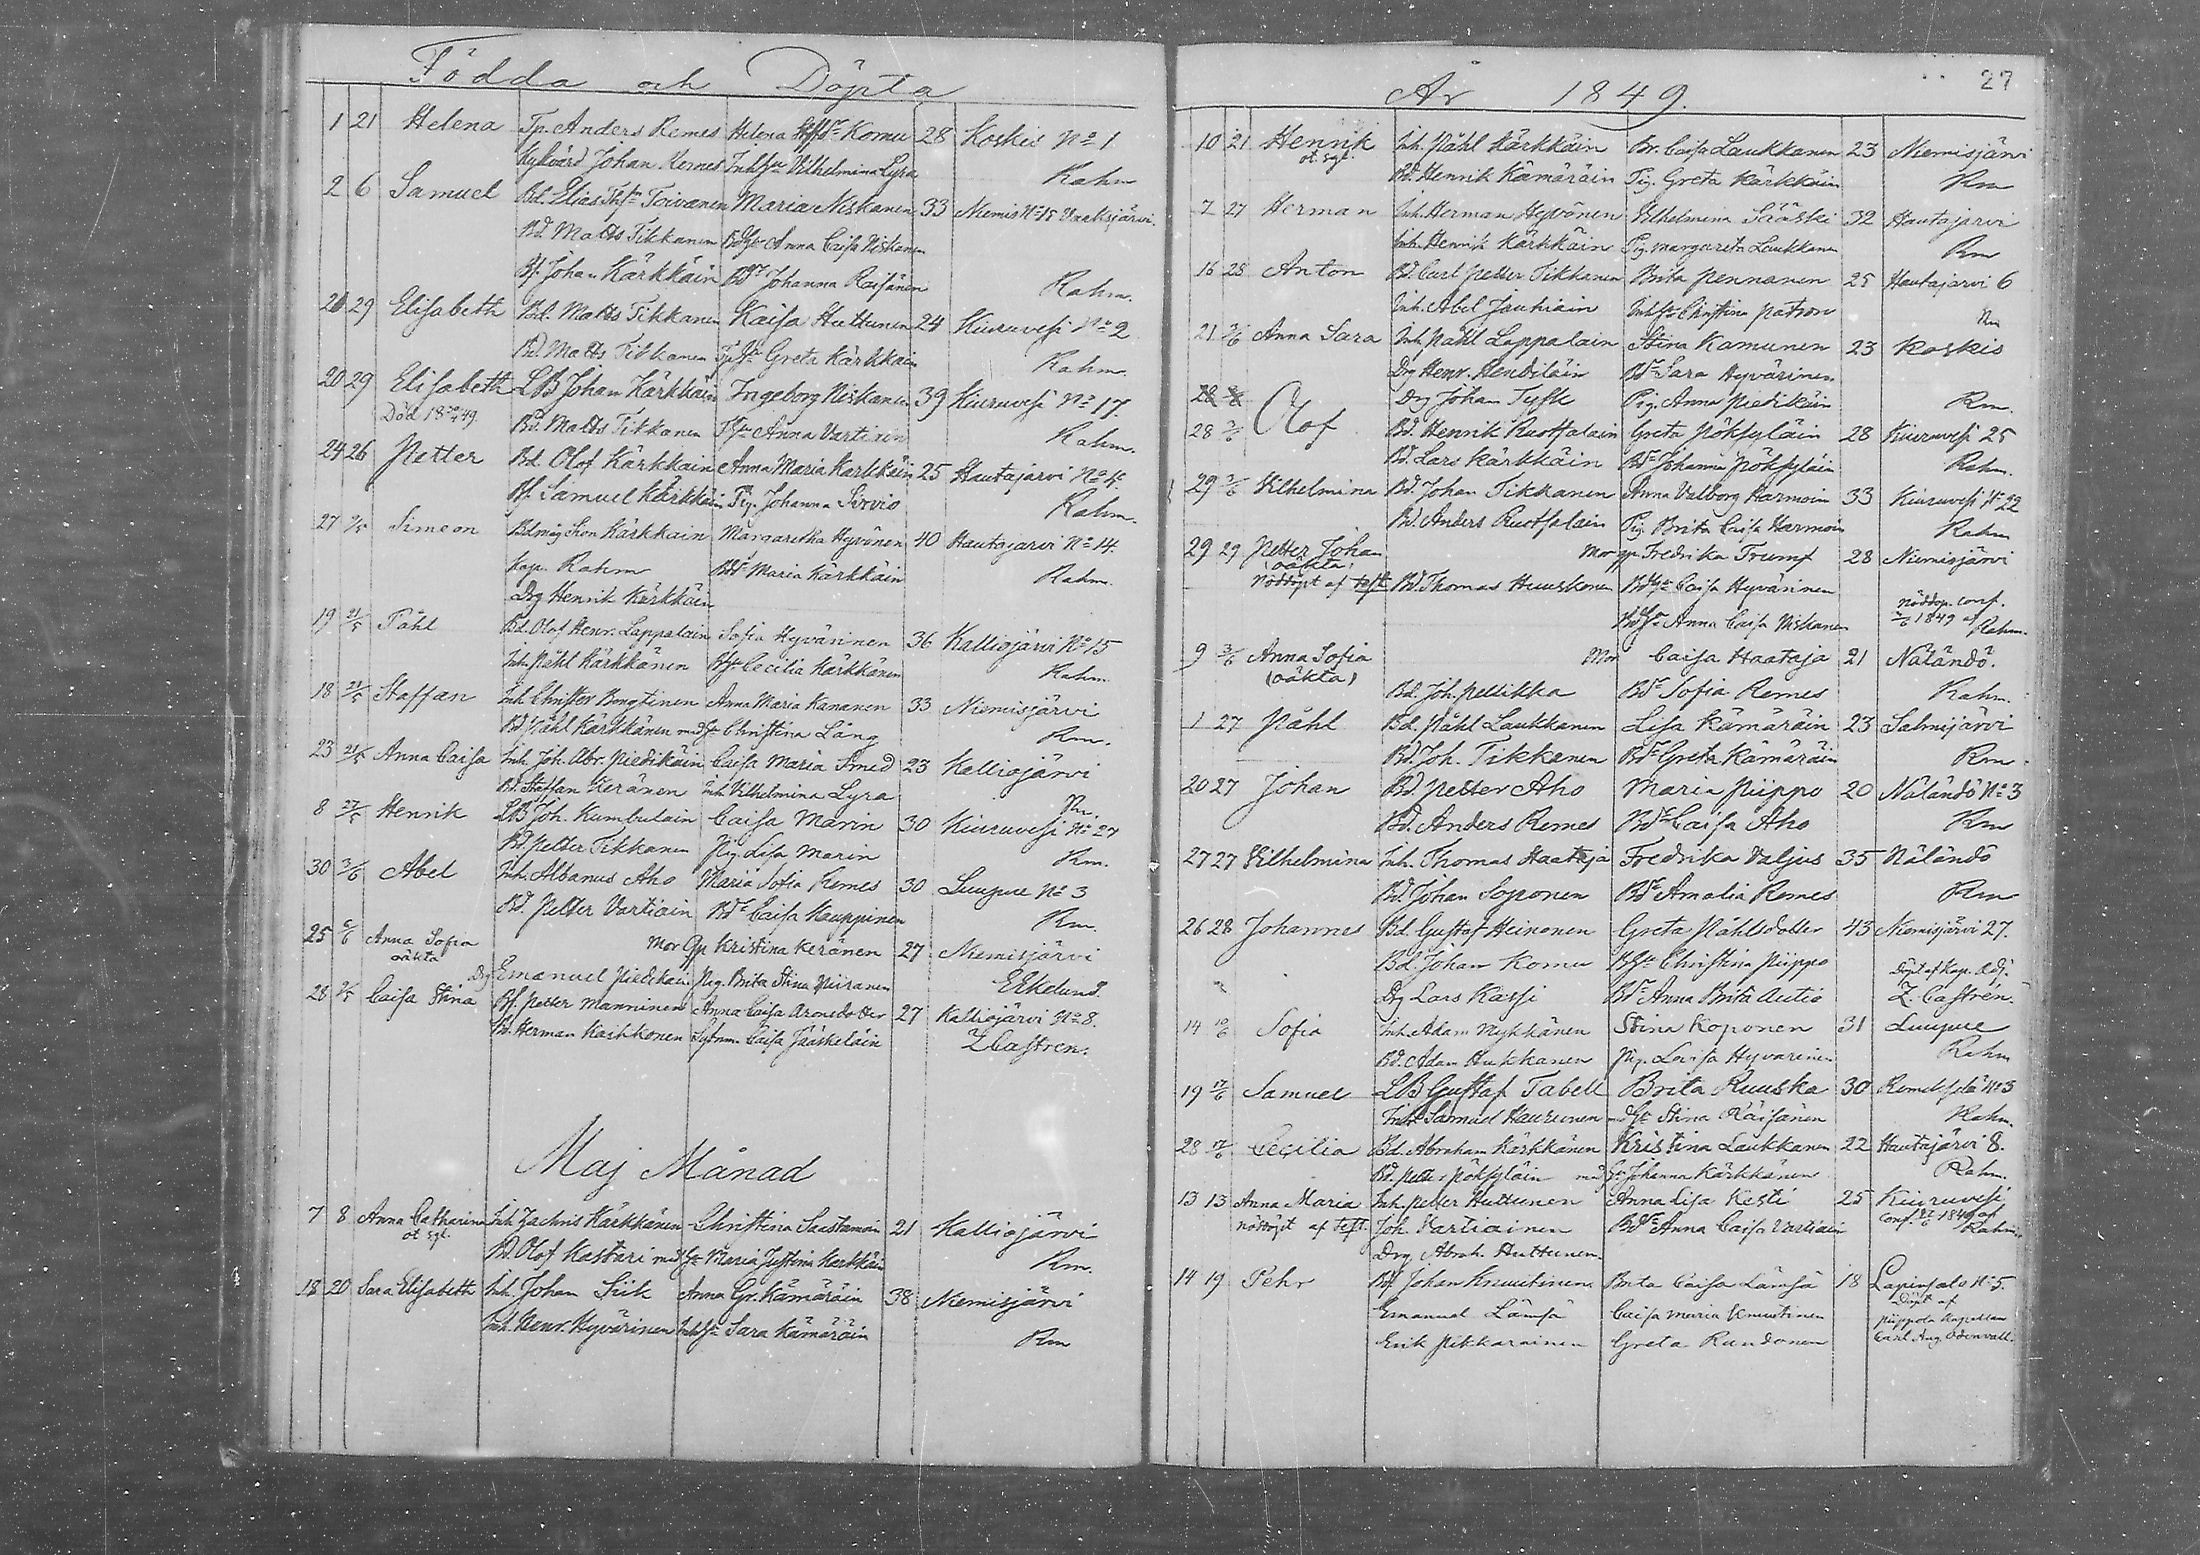 Födda och Döpta
1 21 Helena Tp. Anders Remes Helena Komu 28 Koskis No 1
Kykvärd Johan Remes Inhhu Vilhelmina Lyra Rahm
2 6 Samuel Bd. Elias Toivanen Maria Niskanen 33 Niemis No 15
Bd. Matts Tikkanen Anna Caisa Niskanen
Bs. Johan Kärkkäin Johanna Räisänen Rahm.
20 29 Elisabeth Bd. Matts Tikkanen Kaisa Huttunen 24 Kiuruvesi No 2
Bd. Matts Tikkanen Greta Kärkkäin Rahm
20 29 Elisabeth LB Johan Kärkkäin Ingeborg Niskanen 39 Kiuruvesi No 17
Död 49. Bd. Matts Tikkanen Anna Vartiain Rahm.
24 26 Petter Bd. Olof Kärkkäin Anna Maria Karkkäin 25 Hautajärvi No 4.
Bs. Samuel Kärkkäin Pig. Johanna Sirviö Rahm.
27 Simeon Kärkkäin Margaretha Hyvönen 40 Hautajärvi No 14.
Kap. Rahm Maria Kärkkäin Rahm.
Drg Henrik Kärkkäin
19 21/5 Påhl Bd. Olof Henr. Lappalain Sofia Hyvärinen 36 Kalliojärvi No 15
Inh. Påhl Kärkkänen Cecilia Kärkkänen Rahm
18 21/5 Staffan Inh. Christer Bengtinen Anna Maria Kananen 33 Niemisjärvi
Bd Påhl Kärkkänen med Christina Lång Rm.
23 21/5 Anna Caisa Inh. Joh. Abr. Piedikäin Caisa Maria Smed 23 Kalliojärvi
Bd. Staffan Keränen Inh Vilhelmina Lyra Rm.
8 27/5 Henrik LB Joh. Kumbulain Caisa Marin 30 Kiuruvesi No 27
Bd. Petter Tikkanen Pig. Lisa Marin Rm.
30 3/6 Abel Inh. Albanus Aho Maria Sofia Remes 30 Luupue No 3
Bd. Petter Vartiain Caisa Kauppinen Rm.
25 6/6 Anna Sofia Mor Kristina Keränen 27 Niemisjärvi
oäkta Drg Emanuel Piedikäin Pig. Brita Stina Piiranen Ekelund.
28 Caisa Stina Bs. Petter Manninen Anna Caisa 27 Kalliojärvi No 8.
Bd. Herman Kaihkonen Caisa Jääskeläin Z Castren.
Maj Månad
7 8 Anna Catharina Inh. Zachris Kärkkänen Christina Saastamoin 21 Kalliojärvi
Bd. Olof Kastari med Maria Justina Karkkäin Rm.
18 20 Sara Elisabeth Inh. Johan Siik Anna Gr. Kämäräin 38 Niemisjärvi
Inh. Henr. Hyvärinen Sara Kämäräin Rm
År 1849. 27
10 21 Henrik Inh. Påhl Kärkkäin Br. Caisa Laukkanen 23 Niemisjärvi
Bd. Henrik Kämäräin Pig. Greta Kärkkäin Rm
7 27 Herman Inh. Herman Hyvönen Vilhelmina Sääski 32 Hautajarvi
Inh. Henrik Kärkkäin Pig. Margareta Laukkanen Rm
16 28 Anton Bd. Carl Petter Tikkanen Brita Pennanen 25 Hautajarvi 6
Inh. Abel Jauhiain Christina Patron Rm
21 3/6 Anna Sara Inh. Påhl Lappalain Stina Kamunen 23 Koskis
Drg Henr. Hendiläin Sara Hyvärinen
28 Drg Johan Tyfle Pig. Anna Piedikäin Rm.
28 3/6 Olof Bd. Henrik Ruotsalain Greta Pöksyläin 28 Kiuruvesi 25
Bd. Lars Kärkkäin Johanna Pöksyläin Rahm.
29 3/6 Vilhelmina Bd. Johan Tikkanen Anna Valborg Harmoin 33 Kiuruvesi No 22
Bd. Anders Ruotsalain Pig. Brita Caisa Harmoin Rahm
29 29 Petter Johan Mor Fredrika Trumf 28 Niemisjärvi
(oäkta)
Nöddöpt af Bd. Thomas Huuskonen Caisa Hyvärinen
Anna Caisa Niskanen nöddöp. conf. 1849 af Rahm.
9 3/6 Anna Sofia Mor Caisa Haataja 21 Näländö.
(oäkta) Bd. Joh. Pellikka Sofia Remes Rahm.
1 27 Påhl Bd. Påhl Laukkanen Lisa Kämäräin 23 Salmijärvi
Bd. Joh. Tikkanen Greta Kämäräin Rm
20 27 Johan Bd Petter Aho Maria Piippo 20 Näländö No 3
Bd. Anders Remes Caisa Aho Rm
27 27 Vilhelmina Inh. Thomas Haataja Fredrika Valjus 35 Näländö
Bd. Johan Soponen Amalia Remes Rm
26 28 Johannes Bd. Gustaf Heinonen Greta Påhlsdotter 43 Niemisjärvi 27.
Bd. Johan Komu Christina Piippo Döpt af Kap. Adj.
Drg Lars Kassi Anna Brita Autio Z. Castrén.
14 10/6 Sofia Inh. Adam Nykkänen Stina Koponen 31 Luupue
Bd. Adam Hukkanen Pig. Lovisa Hyvarinen Rahm
19 17/6 Samuel LB Gustaf Tabell Brita Ruuska 30 No 5
Inh. Samuel Haurunen Stina Räisänen Rahm.
28 17/6 Cecilia Bd. Abraham Kärkkänen Kristina Laukkanen 22 Hautajärvi 8.
Bd. Petter Pöksyläin med Johanna Kärkkänen Rahm.
13 13 Anna Maria Inh. Petter Huttunen Anna Lisa Kesti 25 Kiuruvesi
nöddöpt af test. Joh. Vartiainen Anna Caisa Vartiain conf. 1849 af Rahm
Drg. Abrah. Huttunen.
14 19 Pehr Bs. Johan Knuutinen Brita Caisa Lämsä 18 Lapinsalo No 5.
Emanuel Lämsä Caisa Maria Knuutinen Döpt af
Erik Pikkarainen Greta Ruudonen Piippola Kapellan Carl Aug. Odenvall.